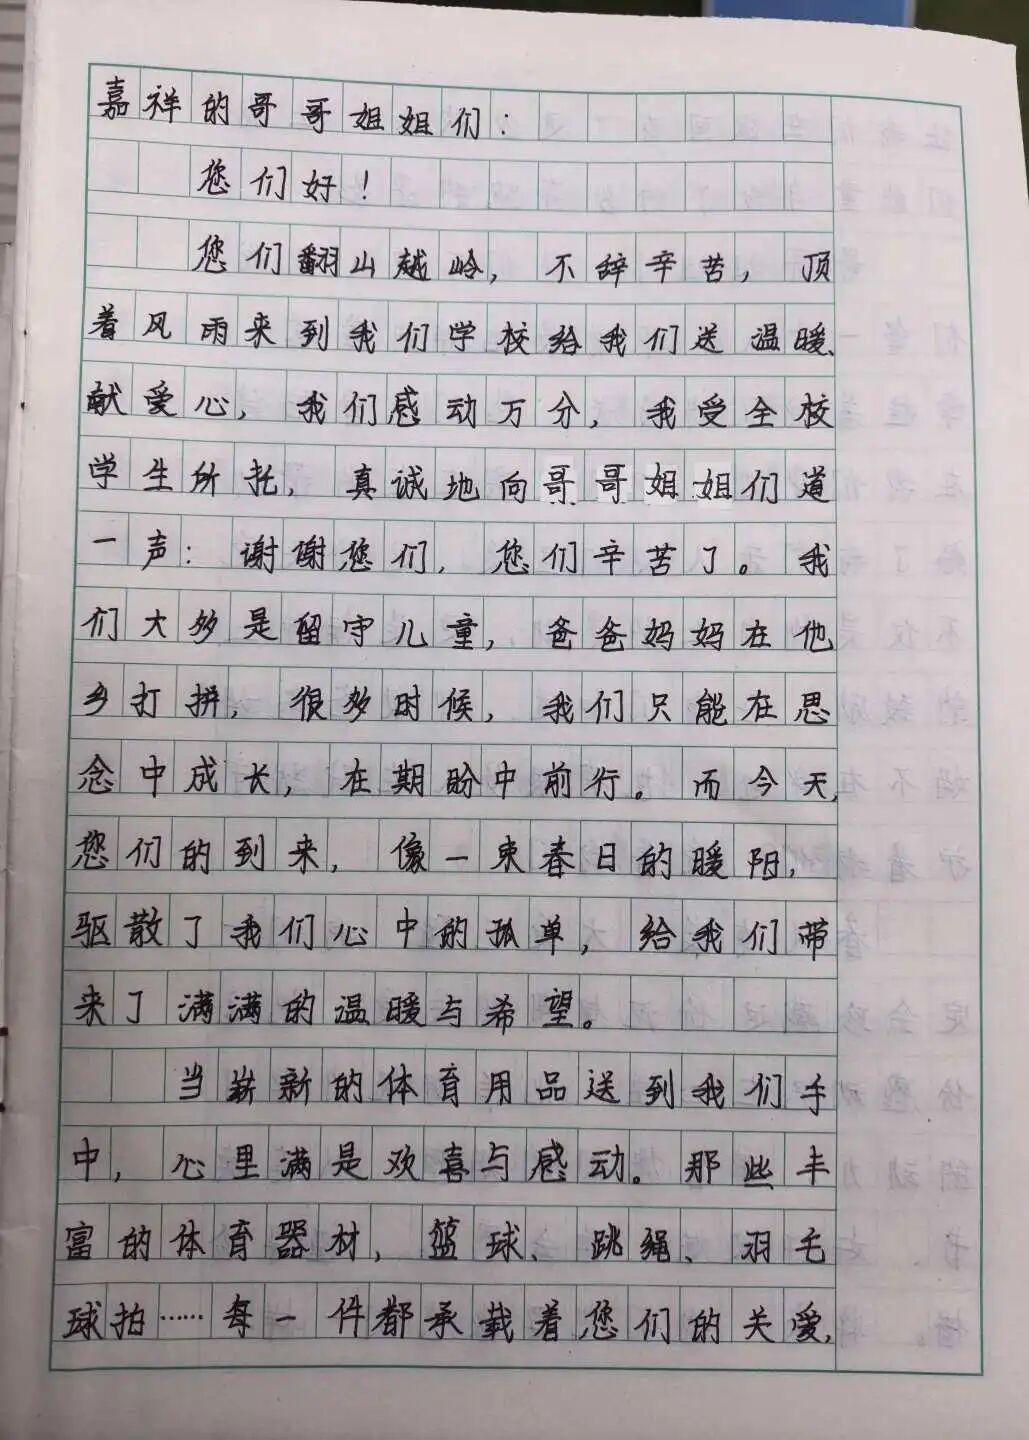 嘉祥的哥哥姐姐们：
您们好！
您们翻山越岭，不辞辛苦，顶
着风雨来到我们学校给我们送温暖、
献爱心，我们感动万分，我受全校
学生所托，真诚地向哥哥姐姐们道
一声：谢谢您们，您们辛苦了。我
们大多是留守儿童，爸爸妈妈在他
乡打拼，很多时候，我们只能在思
念中成长，在期盼中前行。而今天，
您们的到来，像一束春日的暖阳，
驱散了我们心中的孤单，给我们带
来了满满的温暖与希望。
当崭新的体育用品送到我们手
中，心里满是欢喜与感动。那些丰
富的体育器材，篮球、跳绳、羽毛
球拍……每一件都承载着您们的关爱，